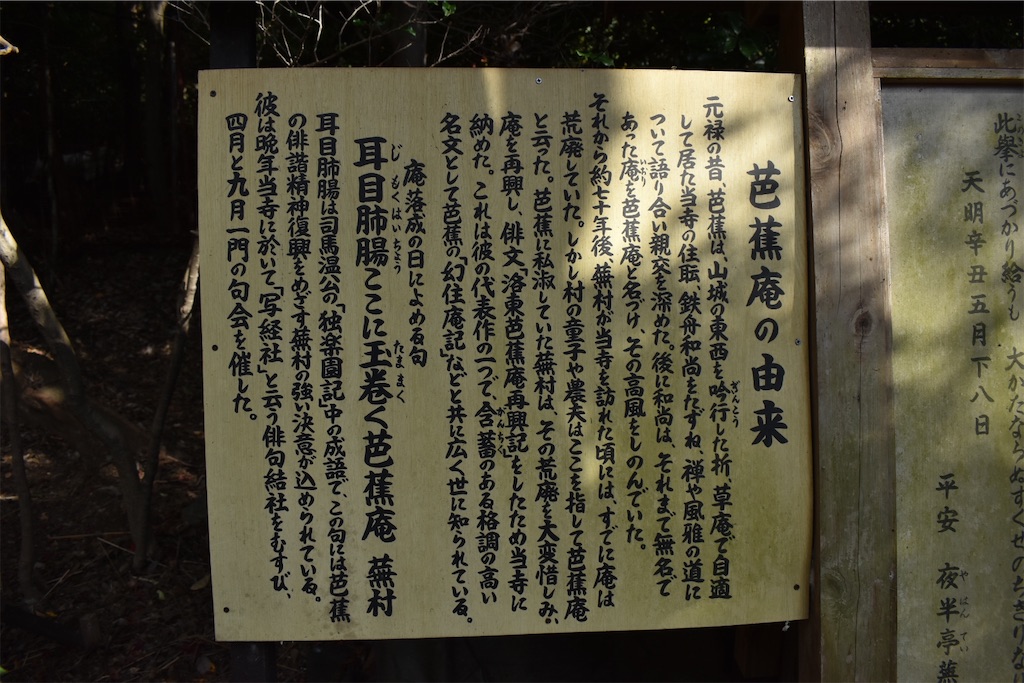 芭蕉庵の由来
元禄の昔、芭蕉は、山城の東西を吟行した折、草庵で自適
して居た当寺の住職・鉄舟和尚をたずね、禅や風雅の道に
ついて語り合い親交を深めた。後に和尚は、それまで無名で
あった庵を芭蕉庵と名づけ、その高風をしのんでいた。
それから約七十年後、蕪村が当寺を訪れた頃には、すでに庵は
荒廃していた。しかし村の童子や農夫はとこを指して芭蕉庵
と云った。芭蕉に私淑していた蕪村は、その荒廃を大変惜しみ、
庵を再興し、俳文「洛東芭蕉庵再興記」をしたため当寺に
納めた。これは彼の代表作の一つで、含蓄のある格調の高い
名文として芭蕉の「幻住庵記」などと共に広く世に知られている。
庵落成の日によめる句
耳目肺腸ここに玉巻く芭蕉庵 蕪村
耳目肺腸は司馬温公の「独楽園記」中の成語で、この句には芭蕉
の俳諧精神復興をめざす蕪村の強い決意が込められている。
彼は晩年当寺に於いて「写経社」と云う俳句結社をむすび、
四月と九月一門の句会を催した。
此挙にあづかり給うも 大かたならぬすくせのちぎりなり
天明辛丑五月下八日
平安 夜半亭蕪